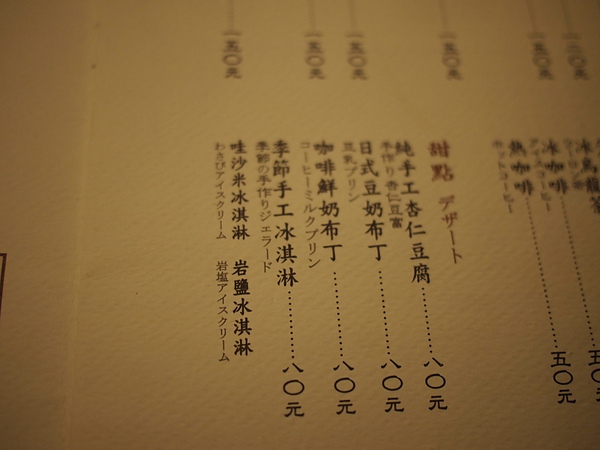 一五〇元
一二〇元
一五〇元
一五〇元
一五〇元
一五〇元
一五〇元
冰咖啡 五〇元
アイスコーヒー
熱咖啡
ホットコーヒー
甜點 デザート
純手工杏仁豆腐 八〇元
手作り杏仁豆富
日式豆奶布丁 八〇元
豆乳プリン
咖啡鮮奶布丁 八〇元
コーヒーミルクプリン
季節手工冰淇淋 八〇元
季節の手作りジェラード
哇沙米冰淇淋 岩鹽冰淇淋
わさびアイスクリーム 岩塩アイスクリーム